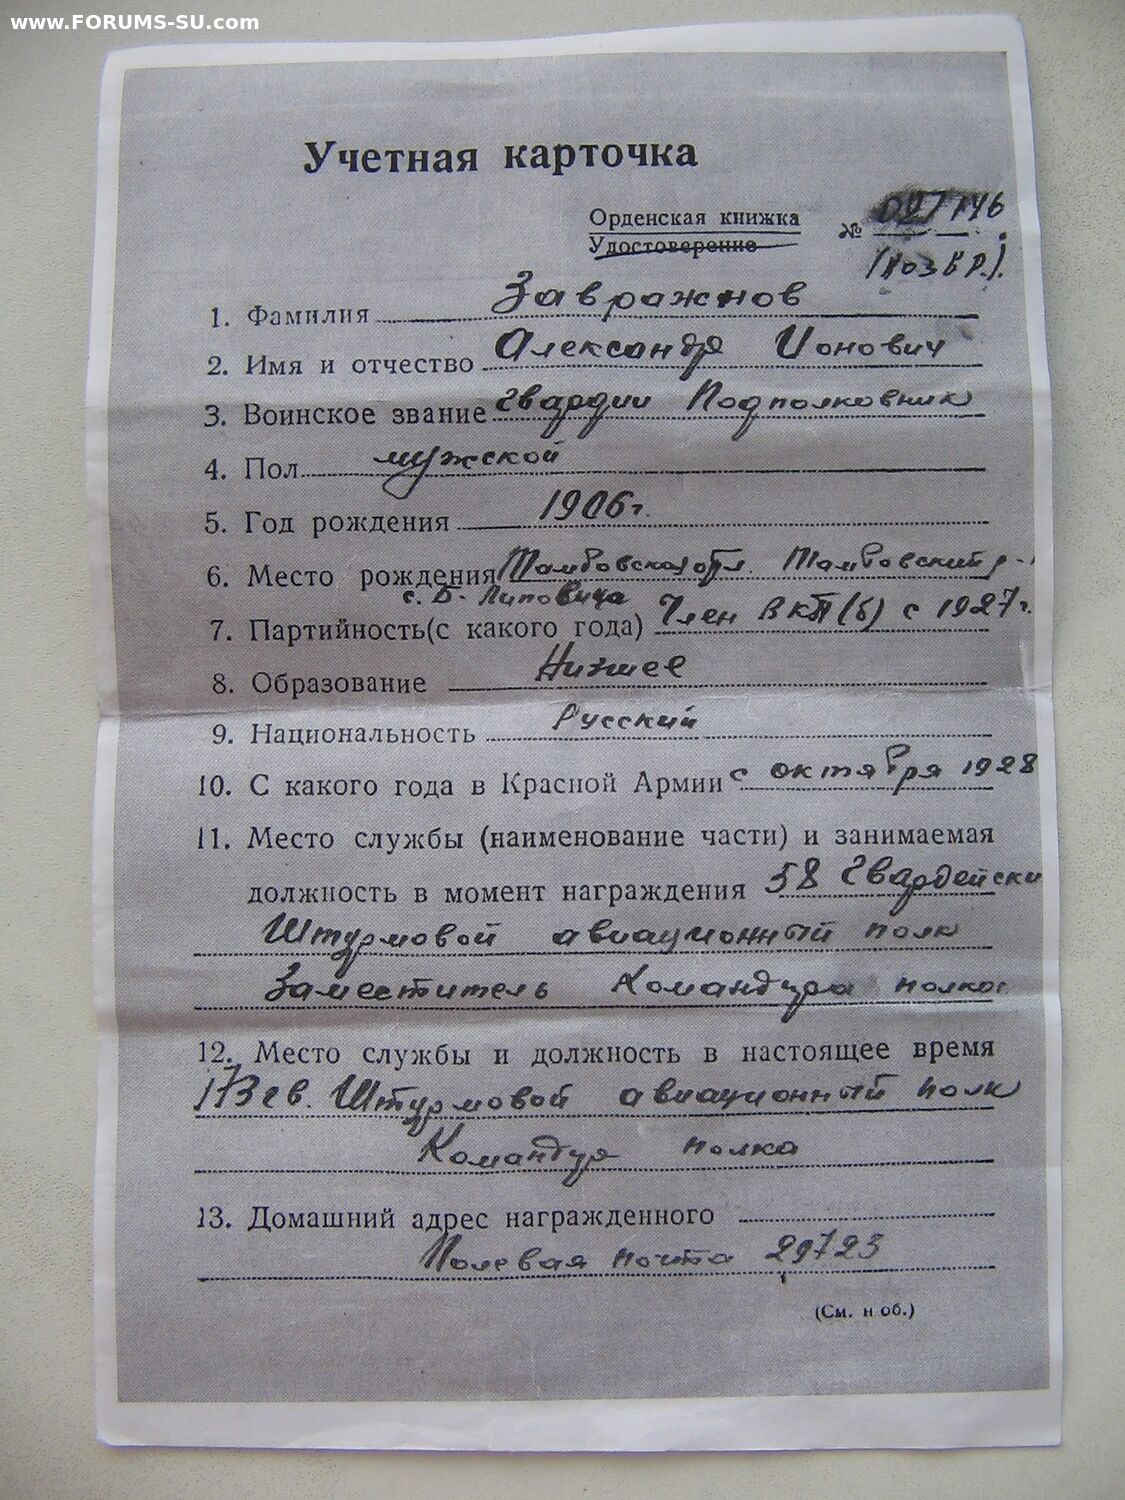 www.FORUMS-SU.com
Учетная карточка
Орденская книжка № 027746
Удостоверение (возвр.).
1. Фамилия Завражнов
2. Имя и отчество Александр Ионович
3. Воинское звание гвардии Подполковник
4. Пол мужской
5. Год рождения 1906г.
6. Место рождения Тамбовская обл. Тамбовский р-
с. Б-Липовица
7. Партийность(с какого года) Член ВКП(б) с 1927г.
8. Образование Низшее
9. Национальность Русский
10. С какого года в Красной Армии с октября 1928
11. Место службы (наименование части) и занимаемая
должность в момент награждения 58 Гвардейски
Штурмовой авиационный полк
Заместитель Командира полка
12. Место службы и должность в настоящее время
173 гв. Штурмовой авиационный полк
Командир полка
13. Домашний адрес награжденного
Полевая почта 29723
(См. н об.)